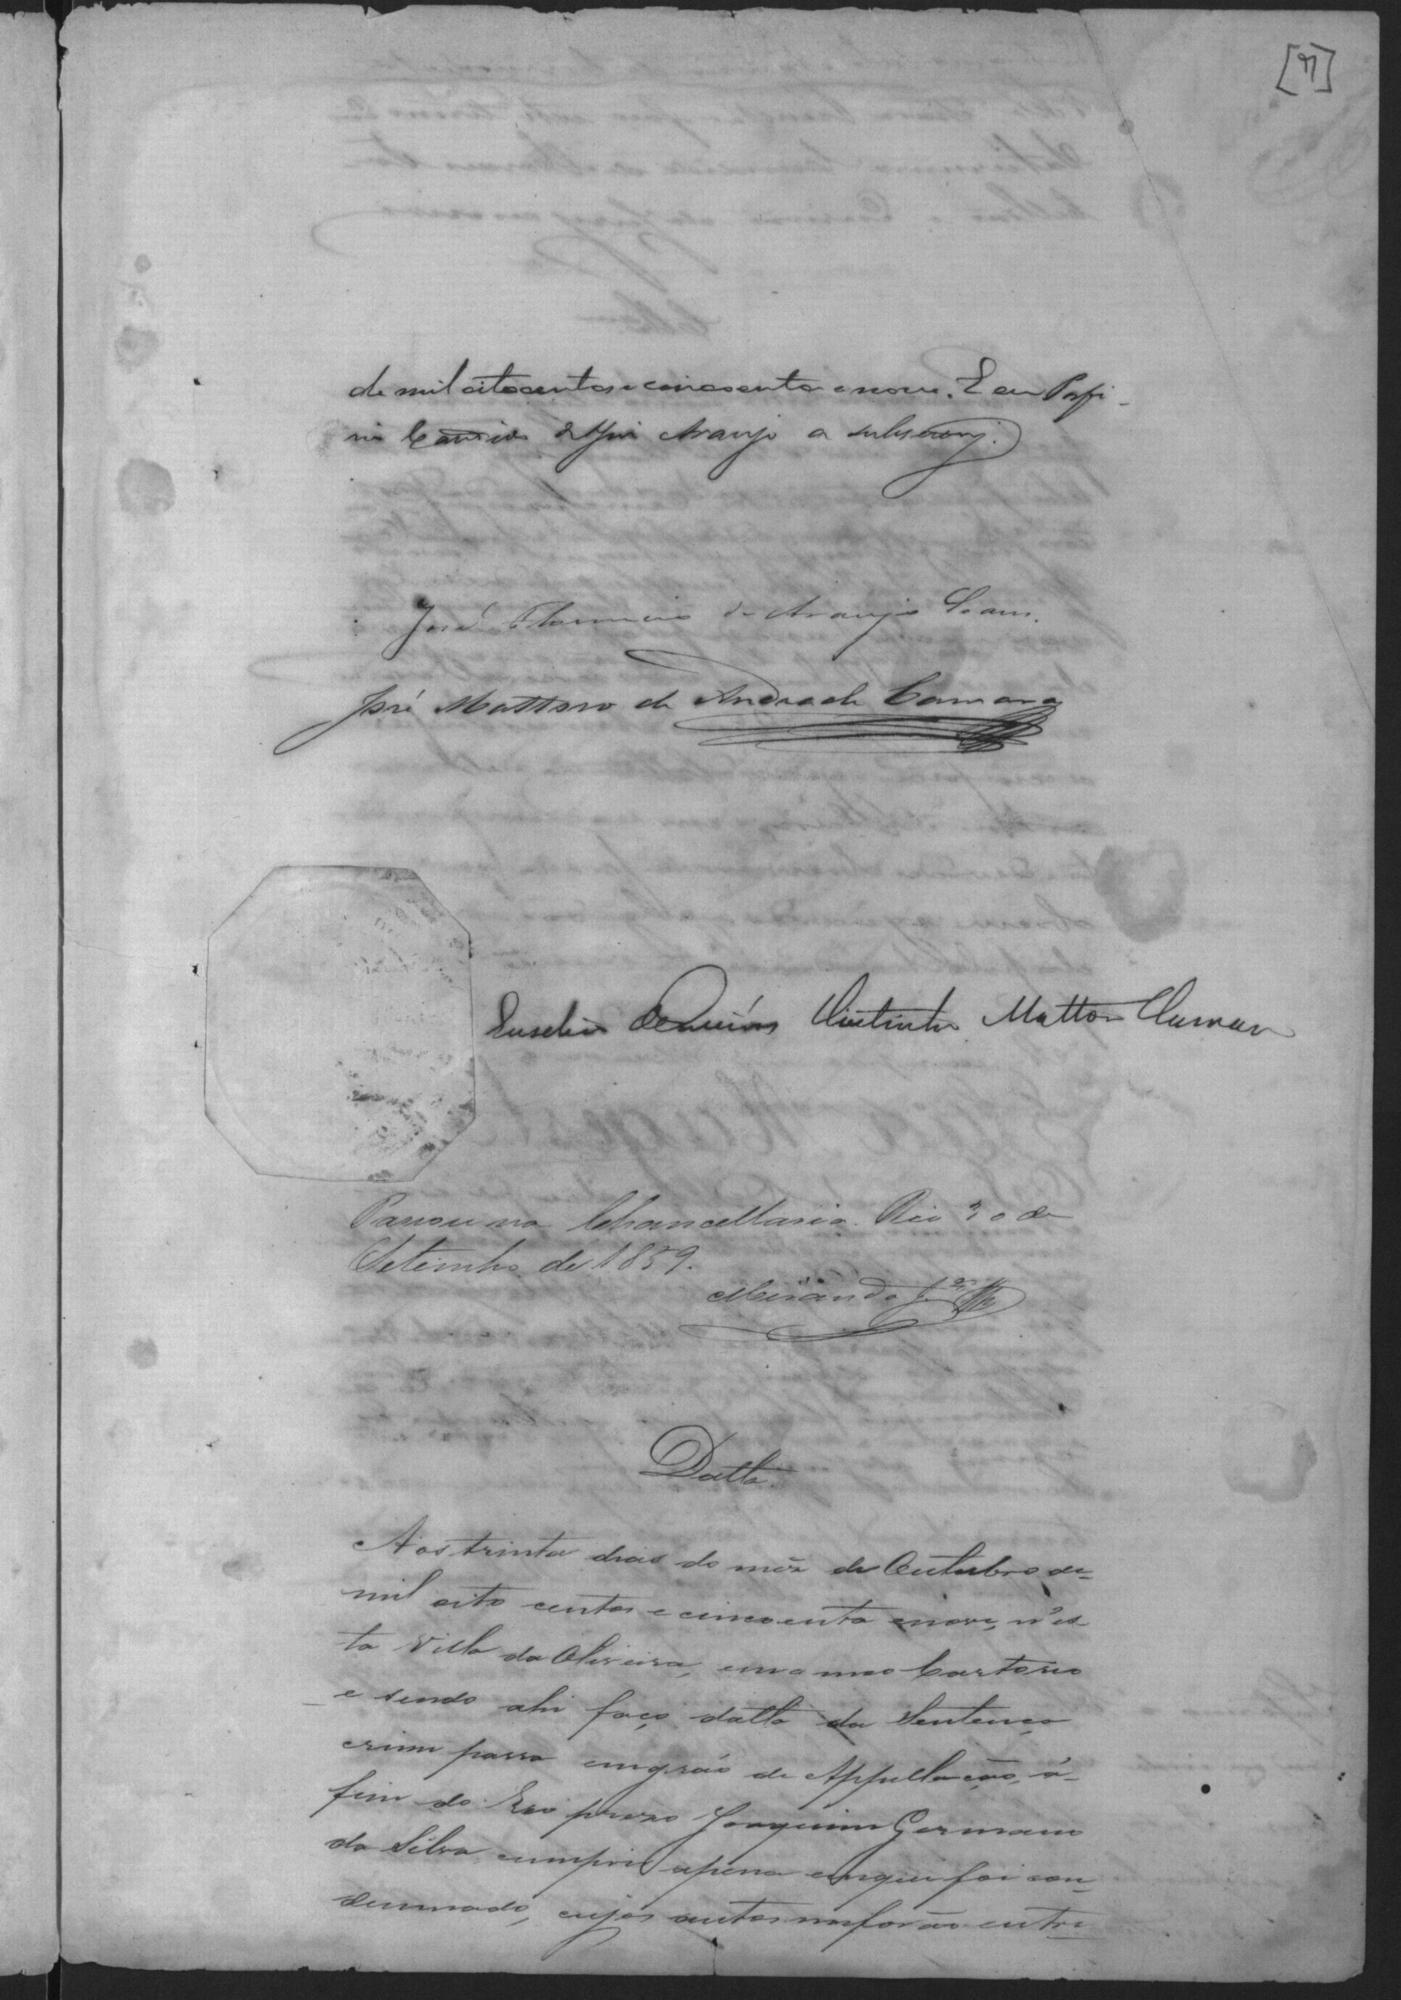 [7]
de mil oitocentos e cincoenta e nove. E eu Porfi-
rio Candido de Araujo a subscrevi.
José Florencio de Araujo Soares.
José Mattoso de Andrade Camara
Eusebio de Queirós Coutinho Mattoso Camara
Passou na Chancellaria. Rio 30 de
Setembro de 1859.
Miranda Jor
Datta
Aos trinta dias do mez de Outubro de
mil oito centos e cincoenta enove, n'es
ta Villa da Oliveira, em o meo Cartorio
e sendo ahi faço datta da Sentença
crime passa emgráo de Appellação, á-
fim do Reo prezo Joaquim Germano
da Silva cumprir apena emque foi con-
demnado, cujos autos meforão entre